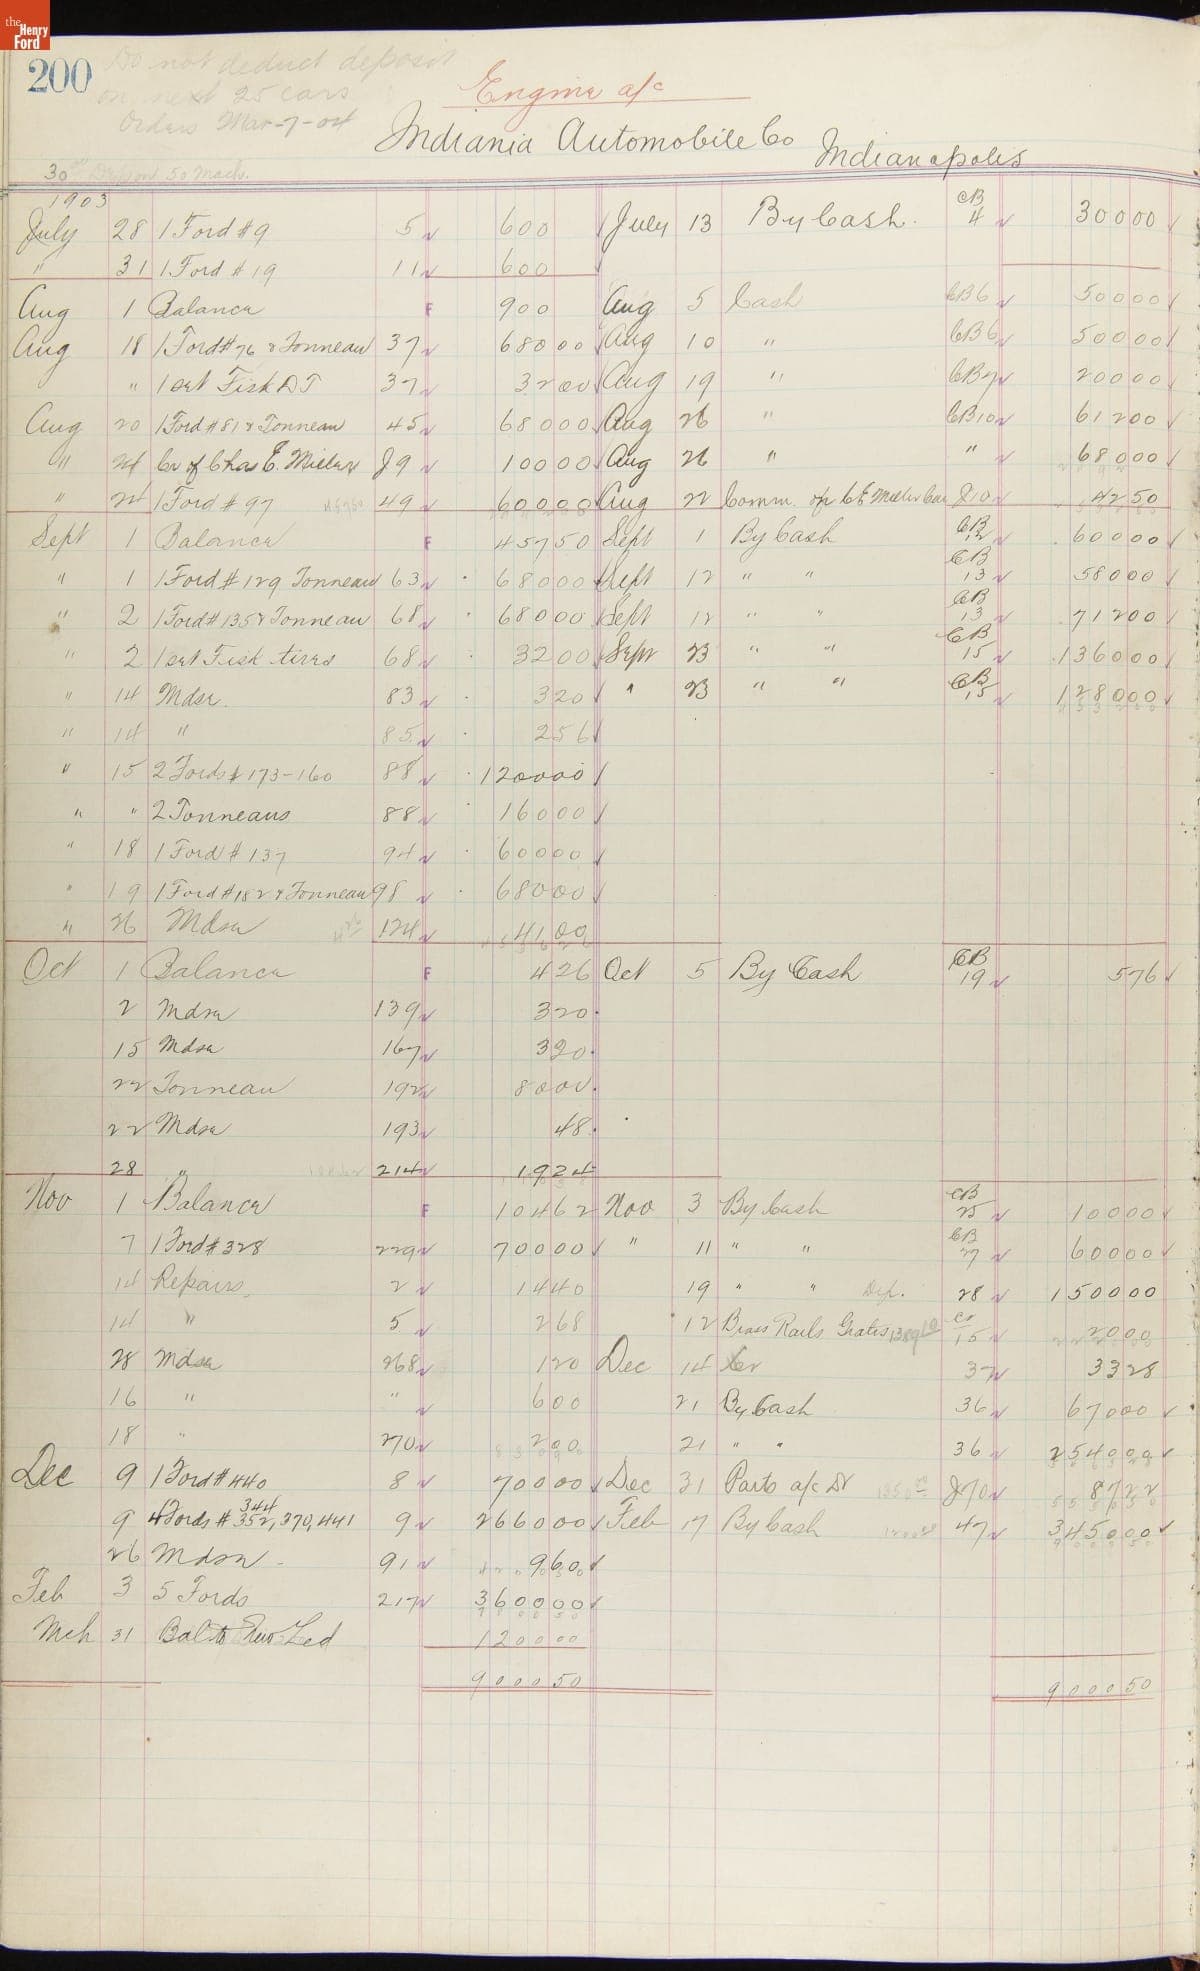 the Henry Ford
200 Do not deduct deposit
on next 25 cars
Orders Mar-7-04
Engine a/c
Indiania Automobile Co Indianapolis
30 00 50 Mach.
1903
July 28 1 Ford #9 5 600 July 13 By Cash. CB 4 30000
" 31 1 Ford #19 11 600
Aug 1 Balance F 900 Aug 5 Cash CB6 50000
Aug 18 1 Ford #76 & Tonneau 37 68000 Aug 10 " CB6 50000
" 1 set Fisk D T 37 3200 Aug 19 " CB7 20000
Aug 20 1 Ford #81 & Tonneau 45 68000 Aug 26 " CB10 61200
" 24 Cr of Chas E. Miller J9 10000 Aug 26 " " 68000
" 24 1 Ford #97 49 60000 Aug 22 Comm. op CE Miller Car J10 4250
Sept 1 Balance F 45750 Sept 1 By Cash CB 12 60000
" 1 1 Ford #129 Tonneau 63 68000 Sept 12 " " CB 13 58000
" 2 1 Ford #135 & Tonneau 68 68000 Sept 12 " " CB 13 71200
" 2 1 set Fisk tires 68 3200 Sepr 23 " " CB 15 136000
" 14 Mdse. 83 320 " 23 " " CB 15 128000
" 14 " 85 256
" 15 2 Fords # 173-160 88 120000
" " 2 Tonneaus 88 16000
" 18 1 Ford #137 94 60000
" 19 1 Ford #182 & Tonneau 98 68000
" 26 Mdse 124 4100
Oct 1 Balance F 426 Oct 5 By Cash CB 19 576
2 Mdse 139 320
15 Mdse 167 320
22 Tonneau 192 8000
22 Mdse 193 48
28 " 214 1924
Nov 1 Balance F 10462 Nov 3 By Cash CB 25 10000
7 1 Ford #328 229 70000 " 11 " " CB 27 60000
14 Repairs. 2 1440 19 " " Dep. 28 150000
14 " 5 268 12 Brass Rails Grates 15 2000
28 Mdse 268 120 Dec 14 Cr 37 3328
16 " " 600 21 By Cash 36 67000
18 " 270 200 21 " " 36 254000
Dec 9 1 Ford #440 8 70000 Dec 31 Parts a/c Dr J70 8722
9 4 Fords # 344 352, 370, 441 9 266000 Feb 17 By Cash 47 345000
26 Mdse 91 960
Feb 3 5 Fords 217 360000
Mch 31 Bal to New Led 120000
900050 900050